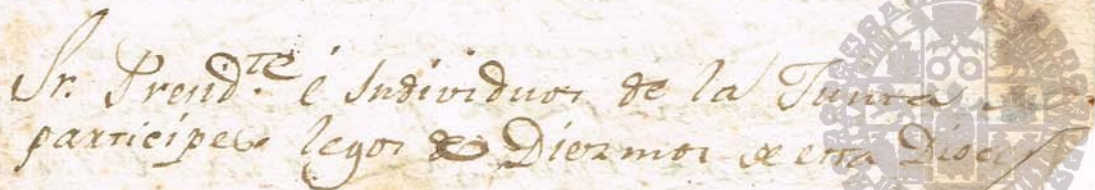 Sr. Presid.te é Individuos de la Junta de
participes legos de Diezmos de esta Diocesis